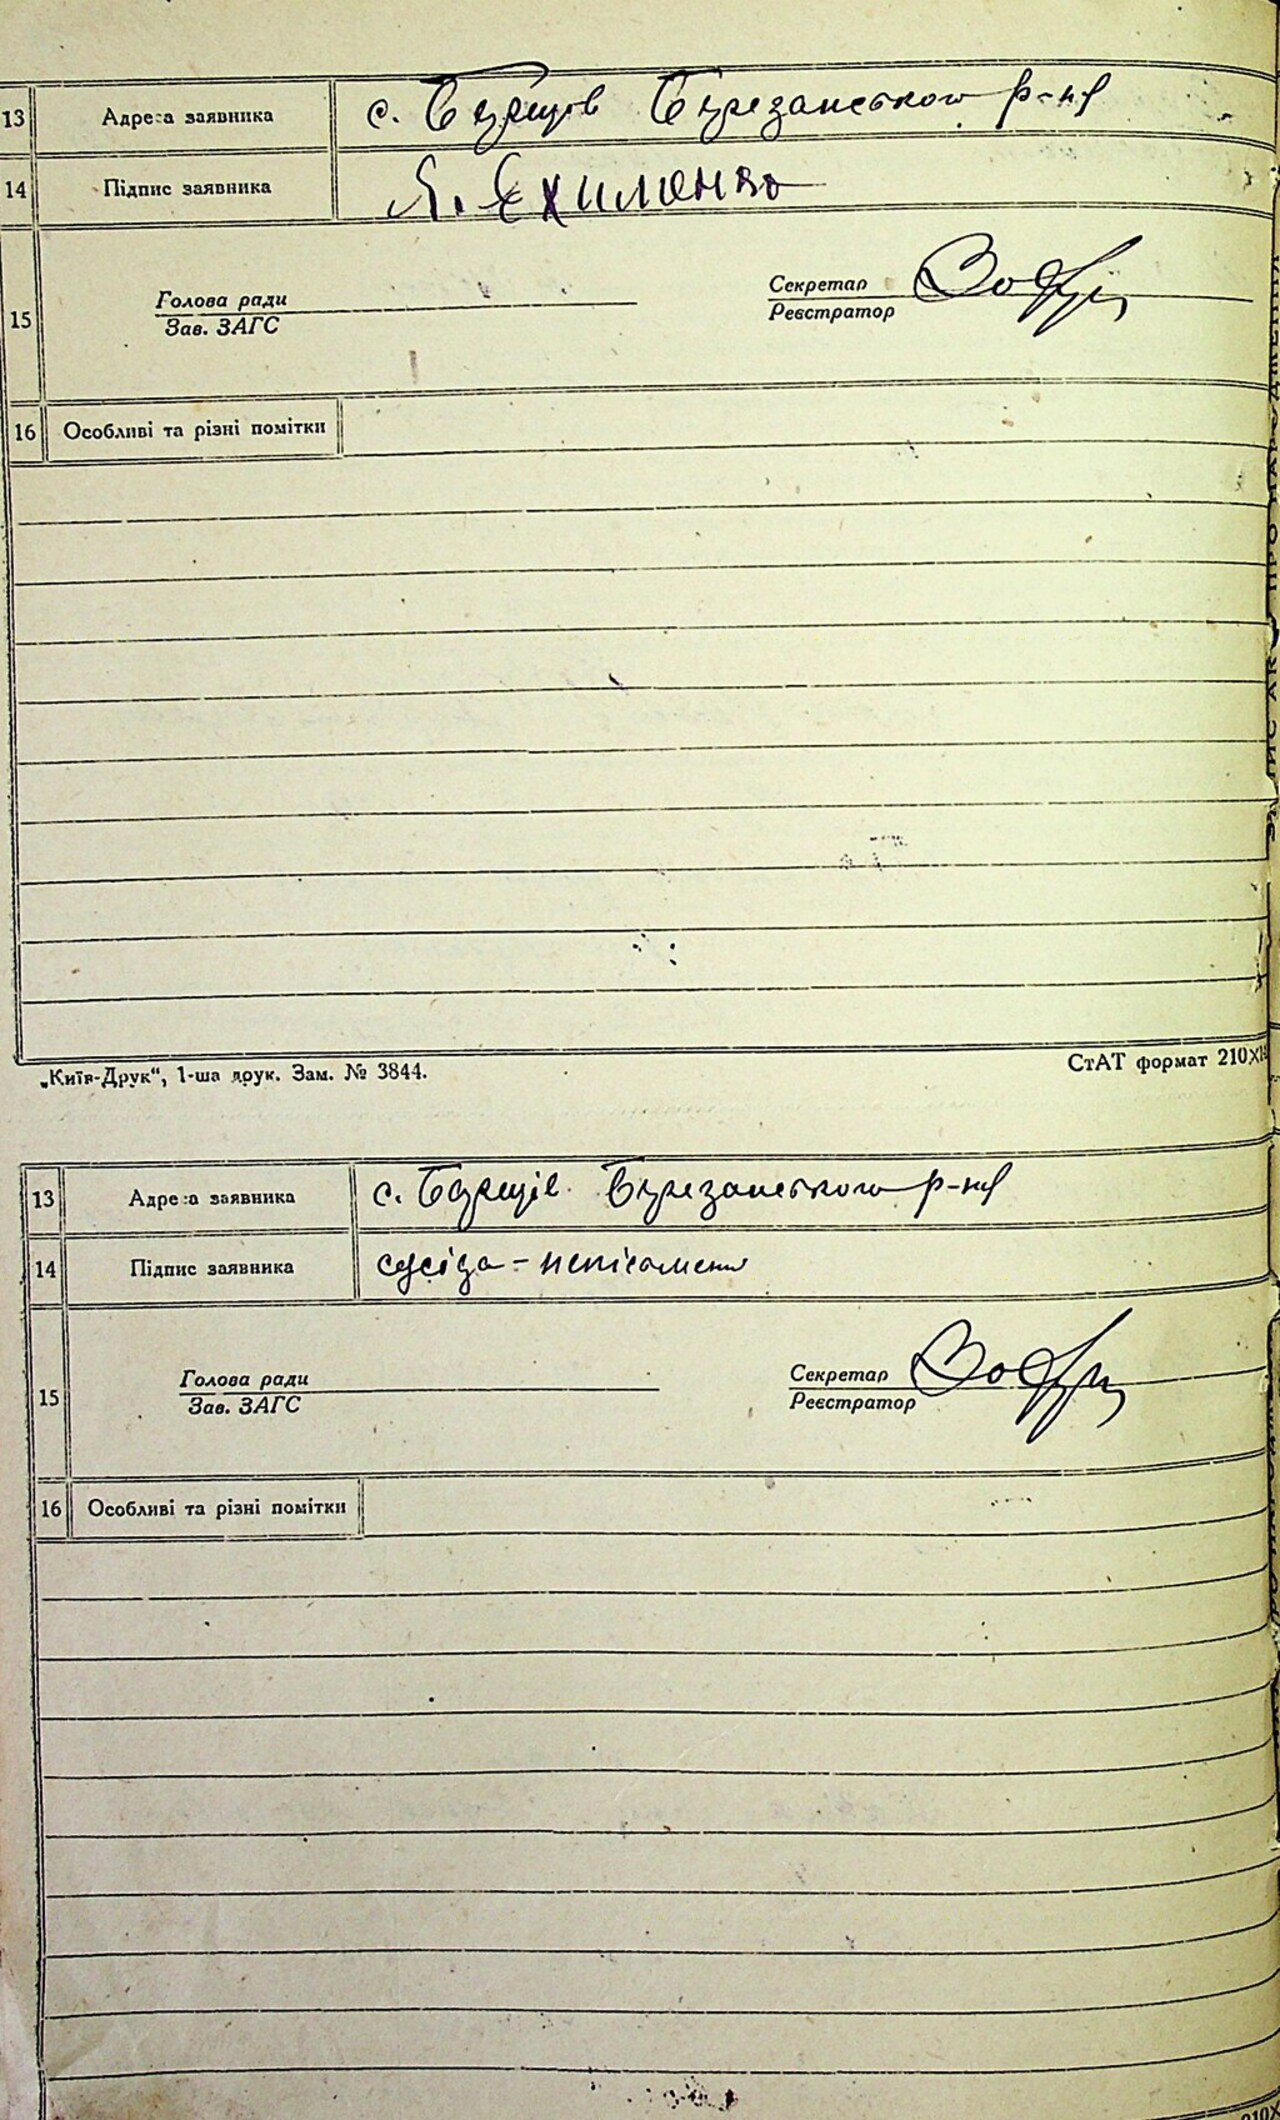 13 Адреса заявника с. Борщів Березанського р-ну
14 Підпис заявника Я. Єхиманко
15 Голова ради Секретар
Зав. ЗАГС Реєстратор
16 Особливі та різні помітки
„Київ-Друк“, 1-ша друк. Зам. № 3844. СтАТ формат 210X
13 Адреса заявника с. Борщів Березанського р-ну
14 Підпис заявника сусіда - неписьмен
15 Голова ради Секретар
Зав. ЗАГС Реєстратор
16 Особливі та різні помітки
210X